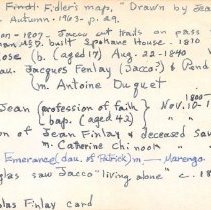 Fidler's map, "Drawn by Jea
Autumn. 1903 - p. 29.
on - 1807 - Jacco cut trails on pass
built Spokane House - 1810
ose (b. (aged 17) Aug. 22 - 1840
au. Jacques Finlay (Jacco?) & Pend
m. Antoine Duquet
1800
Jean (profession of faith) Nov. 10 - 1
(bap. (aged 42)
on of Jean Finlay & deceased Saw
m. Catherine Chinook
Emerance (dau. of Patrick) m — Marengo
glas saw Jacco "living alone" c. 18
las Finlay card